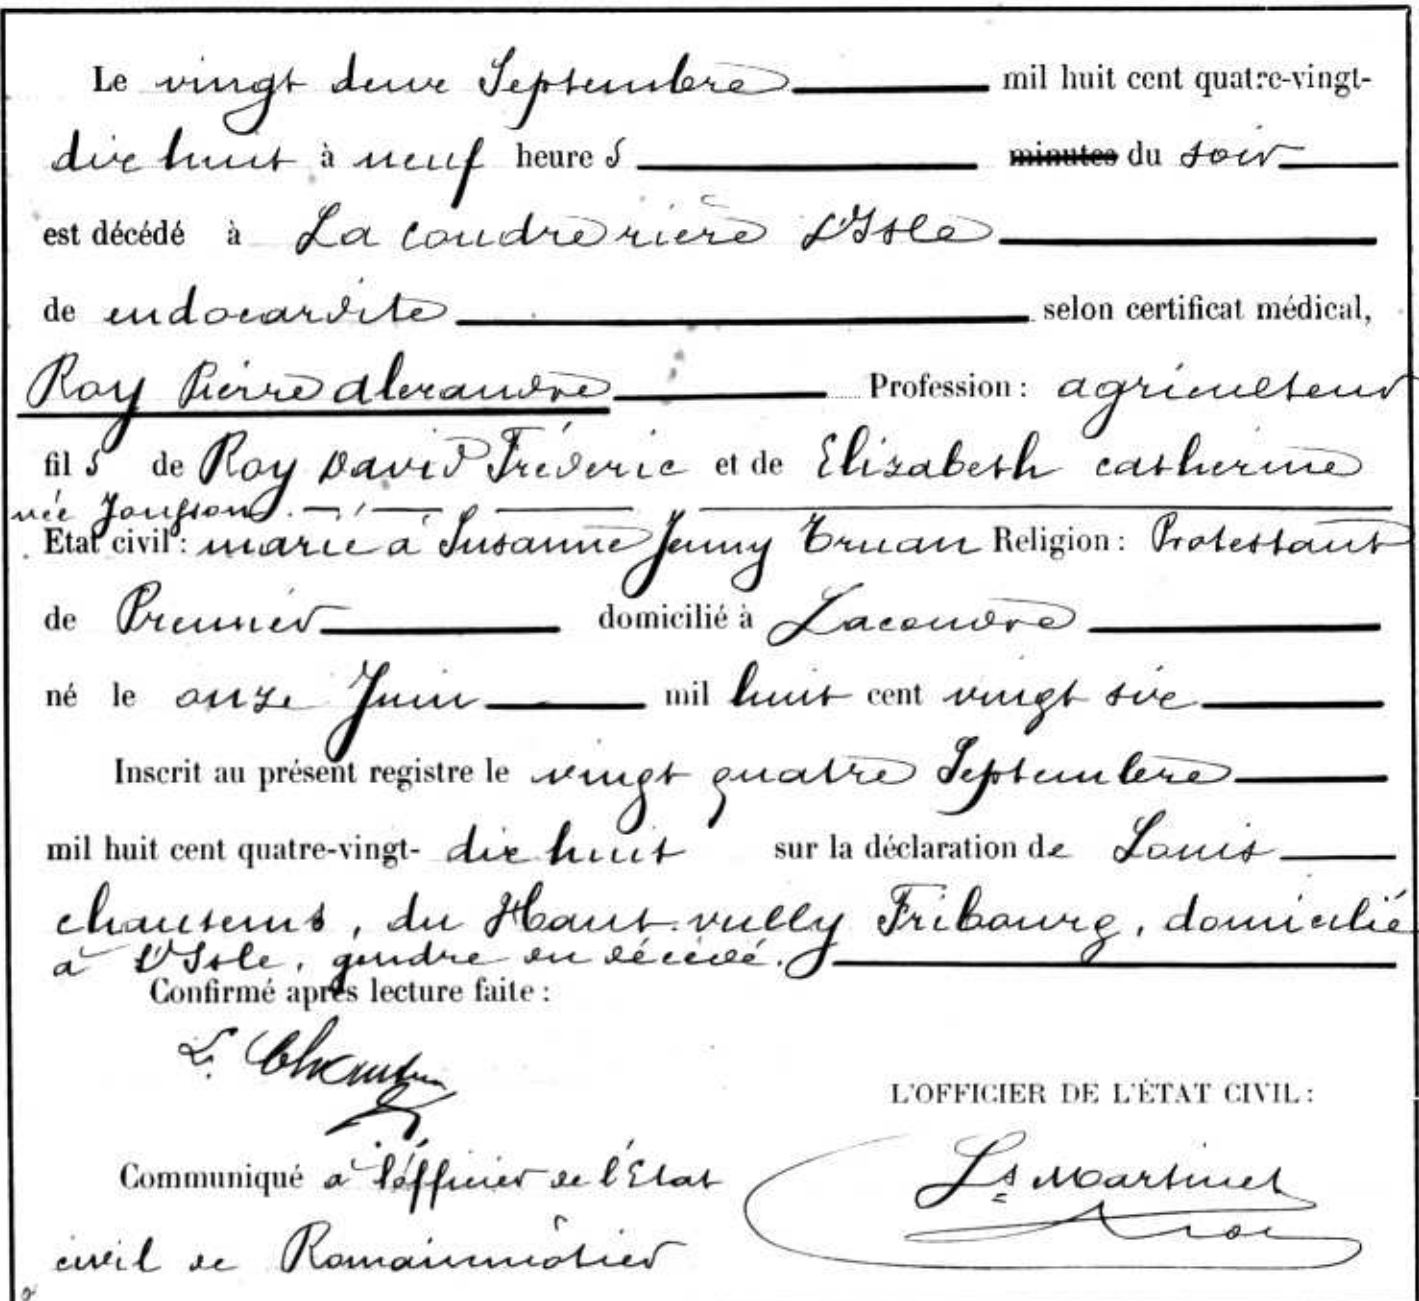 Le vingt deux Septembre mil huit cent quatre-vingt-
dix huit à neuf heures minutes du soir
est décédé à La coudre rière L'Isle
de endocardite selon certificat médical,
Roy Pierre alexandre Profession : agriculteur
fils de Roy David Fréderic et de Elizabeth catherine
née
Etat civil : marié à Susanne Jenny Truan Religion : Protestant
de Premier domicilié à Lacoudre
né le onze Juin mil huit cent vingt six
Inscrit au présent registre le vingt quatre Septembre
mil huit cent quatre-vingt- dix huit sur la déclaration de Louis
chautems, du Haut-vully Fribourg, domicilié
à L'Isle, gendre du décédé.
Confirmé après lecture faite :
L. Chautems
L'OFFICIER DE L'ÉTAT CIVIL :
Communiqué à l'officier de l'Etat
Ls Martinet
civil de Romainmôtier